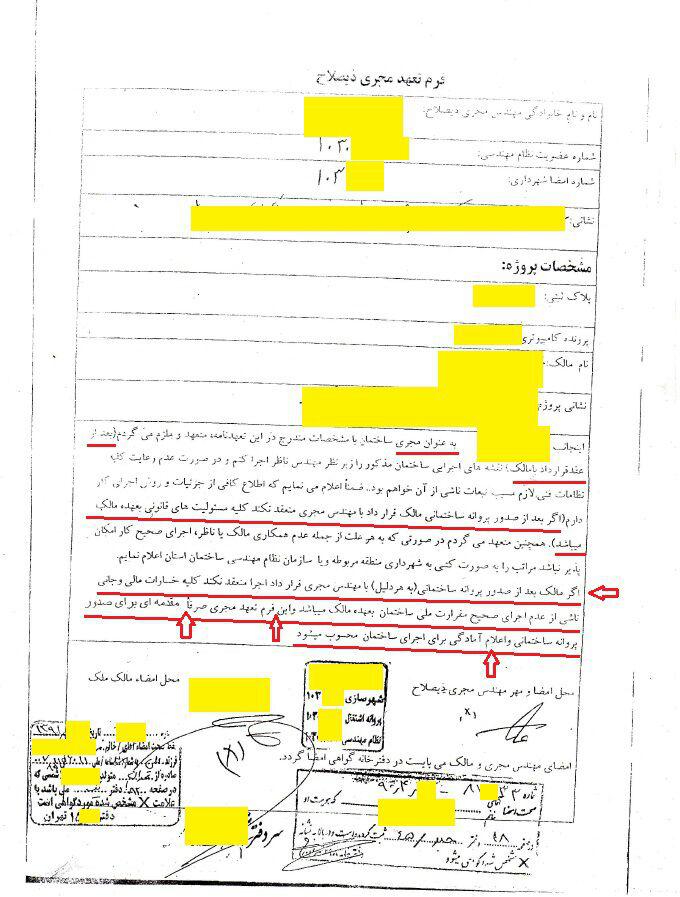 فرم تعهد مجری ذیصلاح
نام و نام خانوادگی مهندس مجری ذیصلاح:
شماره عضویت نظام مهندسی: ۱۰۳۰
شماره امضا شهرداری: ۱۰۳
نشانی:
مشخصات پروژه:
پلاک ثبتی:
پرونده کامپیوتری
نام مالک:
نشانی پروژه
اینجانب به عنوان مجری ساختمان با مشخصات مندرج در این تعهدنامه، متعهد و ملزم می گردم(بعد از
عقدقرارداد بامالک) نقشه های اجرایی ساختمان مذکور را زیر نظر مهندس ناظر اجرا کنم و در صورت عدم رعایت کلیه
نظامات فنی لازم مسبب تبعات ناشی از آن خواهم بود.. ضمناً اعلام می نمایم که اطلاع کافی از جزئیات و روش اجرایی کار
دارم(اگر بعد از صدور پروانه ساختمانی مالک قرار داد با مهندس مجری منعقد نکند کلیه مسئولیت های قانونی بعهده مالک
میباشد). همچنین متعهد می گردم در صورتی که به هر علت از جمله عدم همکاری مالک یا ناظر، اجرای صحیح کار امکان
پذیر نباشد مراتب را به صورت کتبی به شهرداری منطقه مربوطه و یا سازمان نظام مهندسی ساختمان استان اعلام نمایم.
اگر مالک بعد از صدور پروانه ساختمانی(به هردلیل) با مهندس مجری قرار داد اجرا منعقد نکند کلیه خسارات مالی وجانی
ناشی از عدم اجرای صحیح مقررات ملی ساختمان بعهده مالک میباشد واین فرم تعهد مجری صرفاً مقدمه ای برای صدور
پروانه ساختمانی واعلام آمادگی برای اجرای ساختمان محسوب میشود
محل امضا و مهر مهندس مجری ذیصلاح
محل امضاء مالک ملک
شهرسازی ۱۰۳
پروانه اشتغال
نظام مهندسی
امضای مهندس مجری و مالک می بایست در دفترخانه گواهی امضا گردد.
۱۳۹۱
صحت امضاء آقای / خانم
علامت X مشخص شده مورد گواهی است
دفتر تهران
سر دفتر
شماره
صحت امضاء